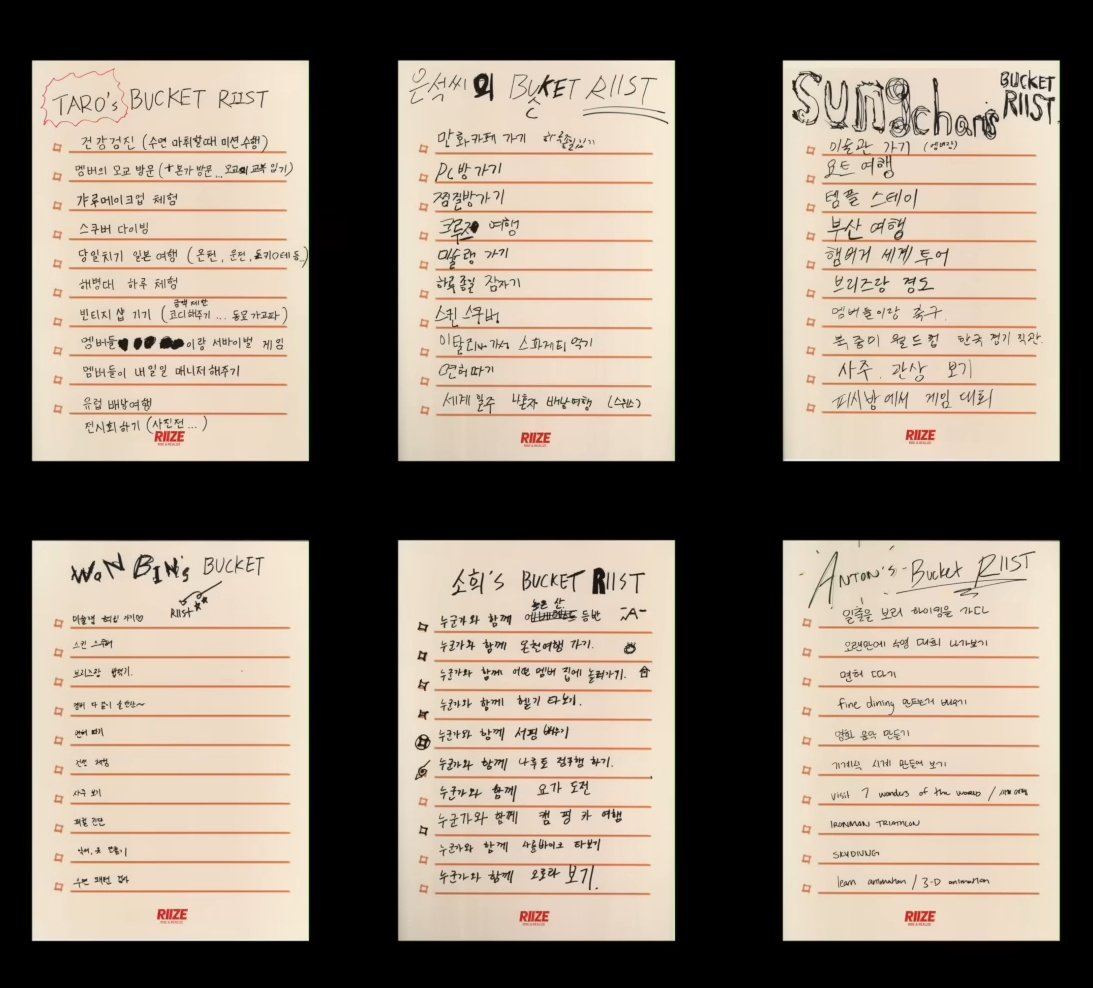 TARO's BUCKET RIIST
건강검진 (수면 마취할때 미션수행)
멤버의 모교 방문 (+본가 방문... 모교의 교복 입기)
갸루메이크업 체험
스쿠버 다이빙
당일치기 일본 여행 (온천, 운전, 등)
해병대 하루 체험
금액 제한
빈티지 샵 가기 (코디해주기 ... 동묘 가고파)
멤버들이랑 서바이벌 게임
멤버들이 내 일일 매니저해주기
유럽 배낭여행
전시회하기 (사진전...)
RIIZE
RISE & REALIZE
은석씨의 BUCKET RIIST
만화카페 가기
PC방 가기
찜질방가기
크루즈 여행
미슐랭 가기
하루종일 잠자기
스킨 스쿠버
이탈리아 가서 스파게티 먹기
면허따기
세계 일주 나혼자 배낭여행 (스위스)
RIIZE
RISE & REALIZE
Sungchan's BUCKET RIIST
미술관 가기
요트 여행
템플 스테이
부산 여행
햄버거 세계 투어
브리즈랑 경도
멤버들이랑 축구.
북중미 월드컵 한국 경기 직관.
사주. 관상 보기
피씨방에서 게임 대회
RIIZE
RISE & REALIZE
WON BIN's BUCKET
RIIST
미슐랭 가기♡
스킨 스쿠버
브리즈랑 밥먹기.
멤버 다 같이
면허 따기
체험
사주 보기
퍼컬 진단
만들기
수면 패턴 검사
RIIZE
RISE & REALIZE
소희's BUCKET RIIST
높은 산
누군가와 함께 등반
누군가와 함께 온천여행 가기.
누군가와 함께 어떤 멤버 집에 놀러가기.
누군가와 함께 헬기 타보기.
누군가와 함께 서핑 배우기
누군가와 함께 나루토 정주행 하기.
누군가와 함께 요가 도전
누군가와 함께 캠핑카 여행
누군가와 함께 사륜바이크 타보기
누군가와 함께 오로라 보기.
RIIZE
RISE & REALIZE
ANTON'S Bucket RIIST
일출을 보러 하이킹을 가다
오랜만에 수영 대회 나가보기
면허 따기
fine dining 만드는거 배우기
영화 음악 만들기
기계식 시계 만들어 보기
visit 7 wonders of the world / 세계 여행
IRONMAN TRIATHLON
SKYDIVING
learn animation / 3-D animation
RIIZE
RISE & REALIZE